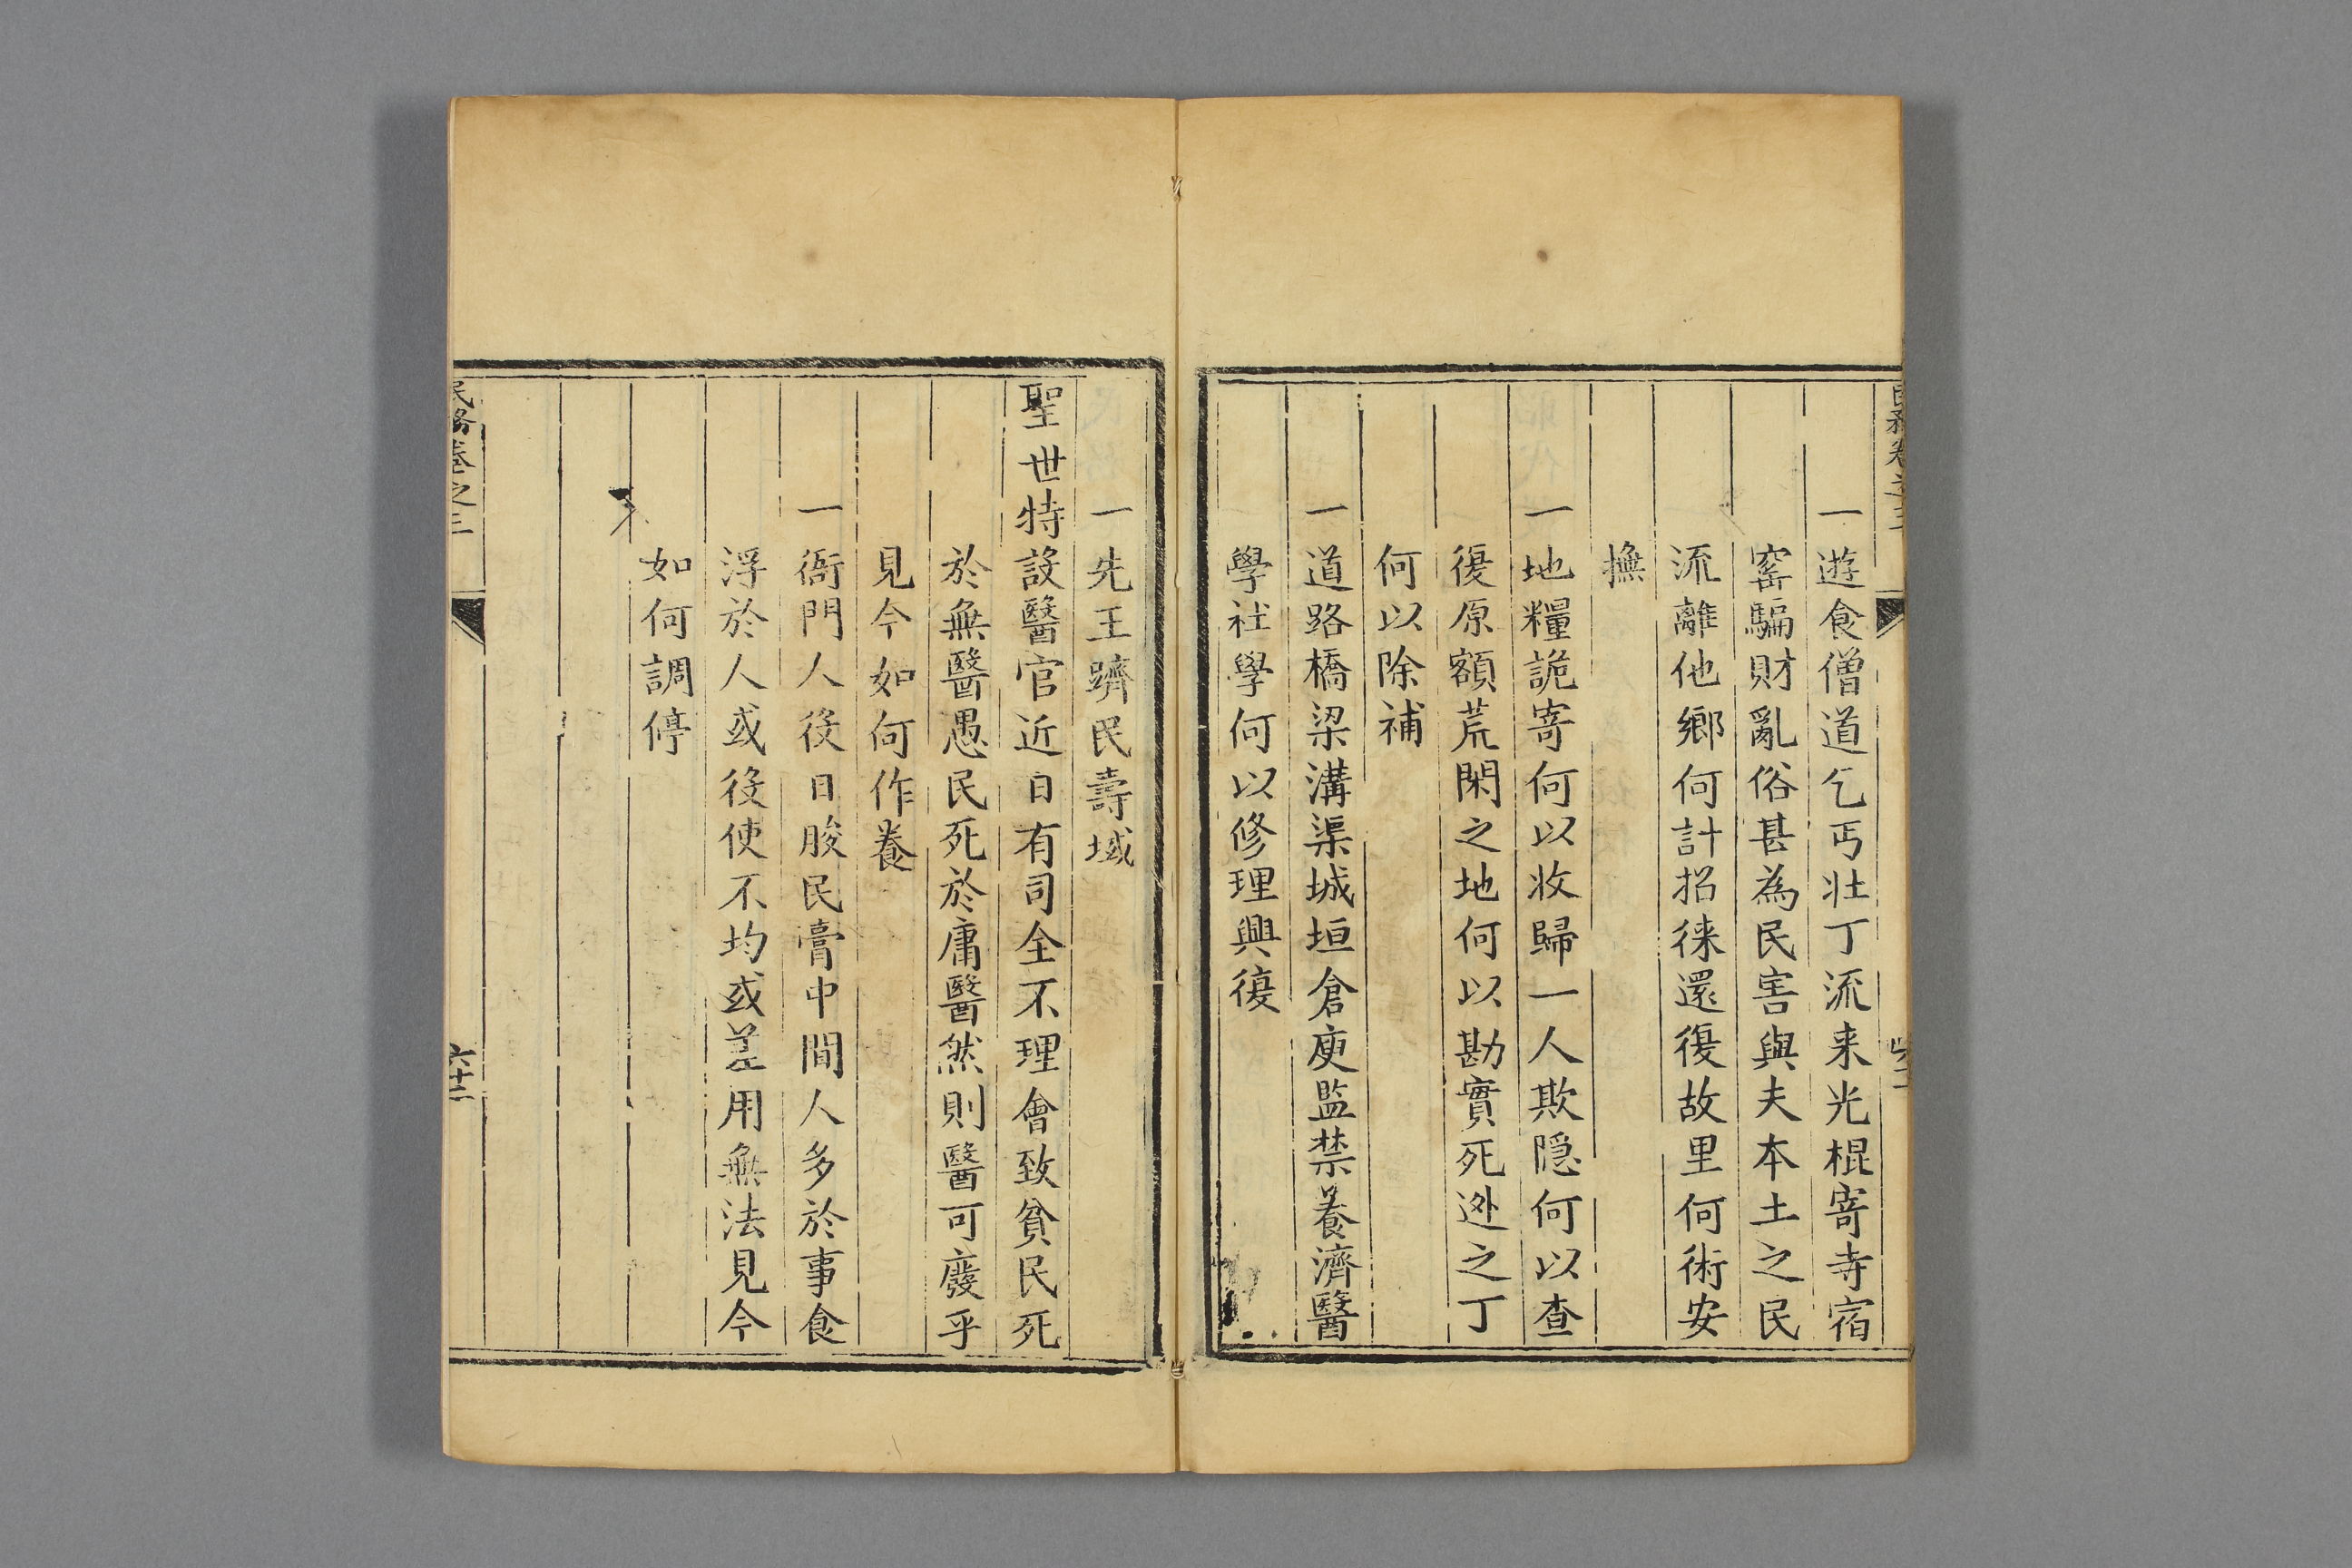 一遊食僧道乞丐壮丁流来光棍寄寺宿
窰騙財亂俗甚為民害與夫本土之民
流離他鄉何計招徠還復故里何術安
撫
一地糧詭寄何以收歸一人欺隠何以查
復原額荒閑之地何以勘實死迯之丁
何以除補
一道路橋梁溝渠城垣倉庾監禁養濟醫
學社學何以修理興復
一先王躋民壽域
聖世特設醫官近日有司全不理會致貧民死
於無醫愚民死於庸醫然則醫可廢乎
見今如何作養
一衙門人役日朘民膏中間人多於事食
浮於人或役使不均或差用無法見今
如何調停
民務卷之三
六十二